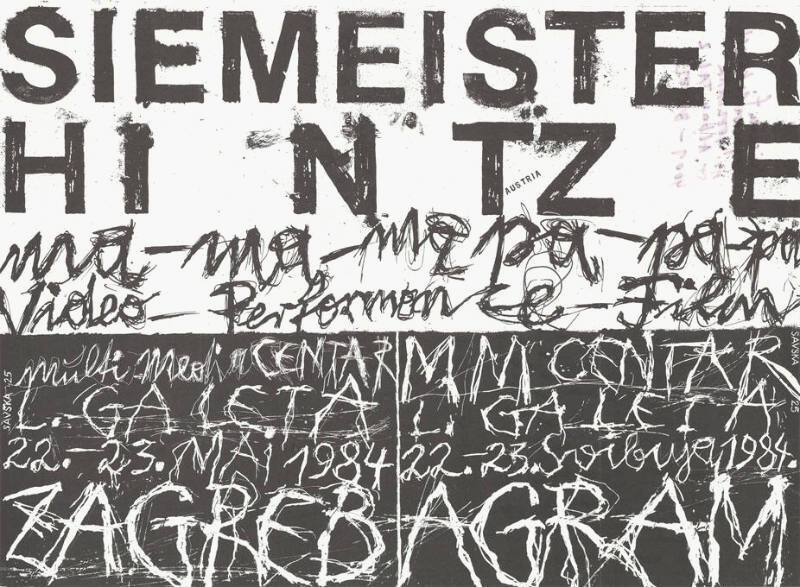 SIEMEISTER
HINTZE
AUSTRIA
ma-ma-ma pa-pa-pa
Video-Performance-Film
multi media CENTAR
L. GALETA
22.-23. MAI 1984
ZAGREB
SAVSKA 25
MM CENTAR
L. GALETA
22.-23. Svibnja 1984.
AGRAM
SAVSKA 25